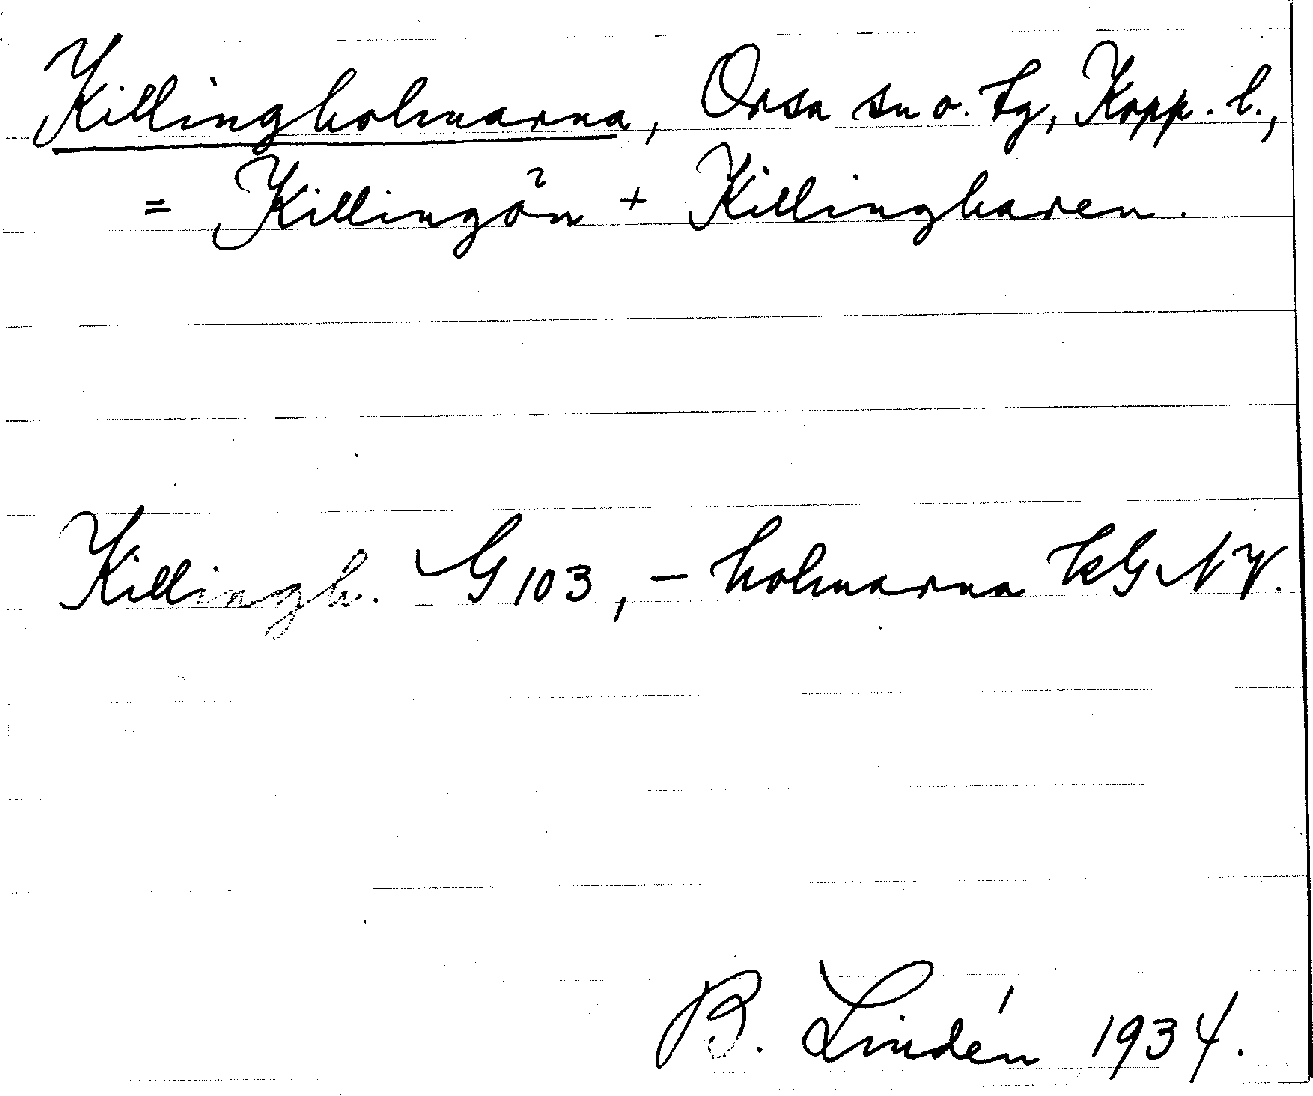 Killingholmarna, Orsa sn o. tg, Kopp. l.,
= Killingön + Killingharen.
Killingh. G 103, - holmarna kG NV.
B. Lindén 1934.